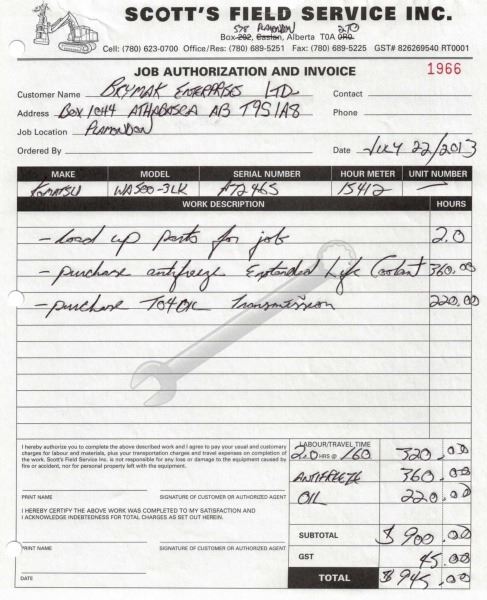 SCOTT'S FIELD SERVICE INC.
578 PLAMONDON 2T0
Box 202, Caslan, Alberta T0A 0R0
Cell: (780) 623-0700 Office/Res: (780) 689-5251 Fax: (780) 689-5225 GST# 826269540 RT0001
JOB AUTHORIZATION AND INVOICE 1966
Customer Name BRYMAK ENTERPRISES LTD Contact
Address BOX 1044 ATHABASCA AB T9S1A8 Phone
Job Location PLAMONDON
Ordered By Date JULY 22/2013
MAKE MODEL SERIAL NUMBER HOUR METER UNIT NUMBER
KOMATSU WA500-3LK A72465 15412 —
WORK DESCRIPTION HOURS
- Load up parts for job 2.0
- purchase antifreeze Extended Life Coolant 360.00
- purchase TO4 OIL Transmission 220.00
I hereby authorize you to complete the above described work and I agree to pay your usual and customary
charges for labour and materials, plus your transportation charges and travel expenses on completion of
the work. Scott's Field Service Inc. is not responsible for any loss or damage to the equipment caused by
fire or accident, nor for personal property left with the equipment.
PRINT NAME SIGNATURE OF CUSTOMER OR AUTHORIZED AGENT
I HEREBY CERTIFY THE ABOVE WORK WAS COMPLETED TO MY SATISFACTION AND
I ACKNOWLEDGE INDEBTEDNESS FOR TOTAL CHARGES AS SET OUT HEREIN.
PRINT NAME SIGNATURE OF CUSTOMER OR AUTHORIZED AGENT
DATE
LABOUR/TRAVEL TIME
2.0 HRS @ 160 320.00
ANTIFREEZE 360.00
OIL 220.00
SUBTOTAL $ 900.00
GST 45.00
TOTAL $ 945.00